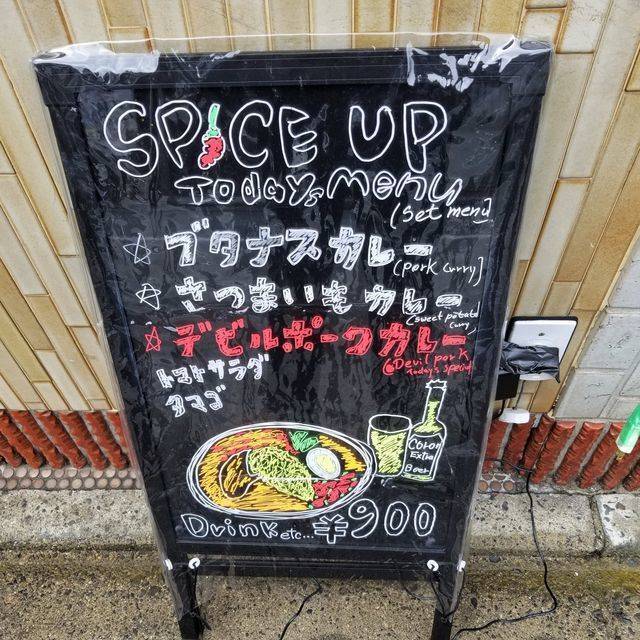 SPICE UP
Todays Menu
(Set menu)
☆ ブタナスカレー
(pork curry)
☆ さつまいもカレー
(sweet potato
curry)
☆ デビルポークカレー
Devil pork
Todays special
トマトサラダ
タマゴ
Coron
Extra
Beer
Drink etc... ¥900